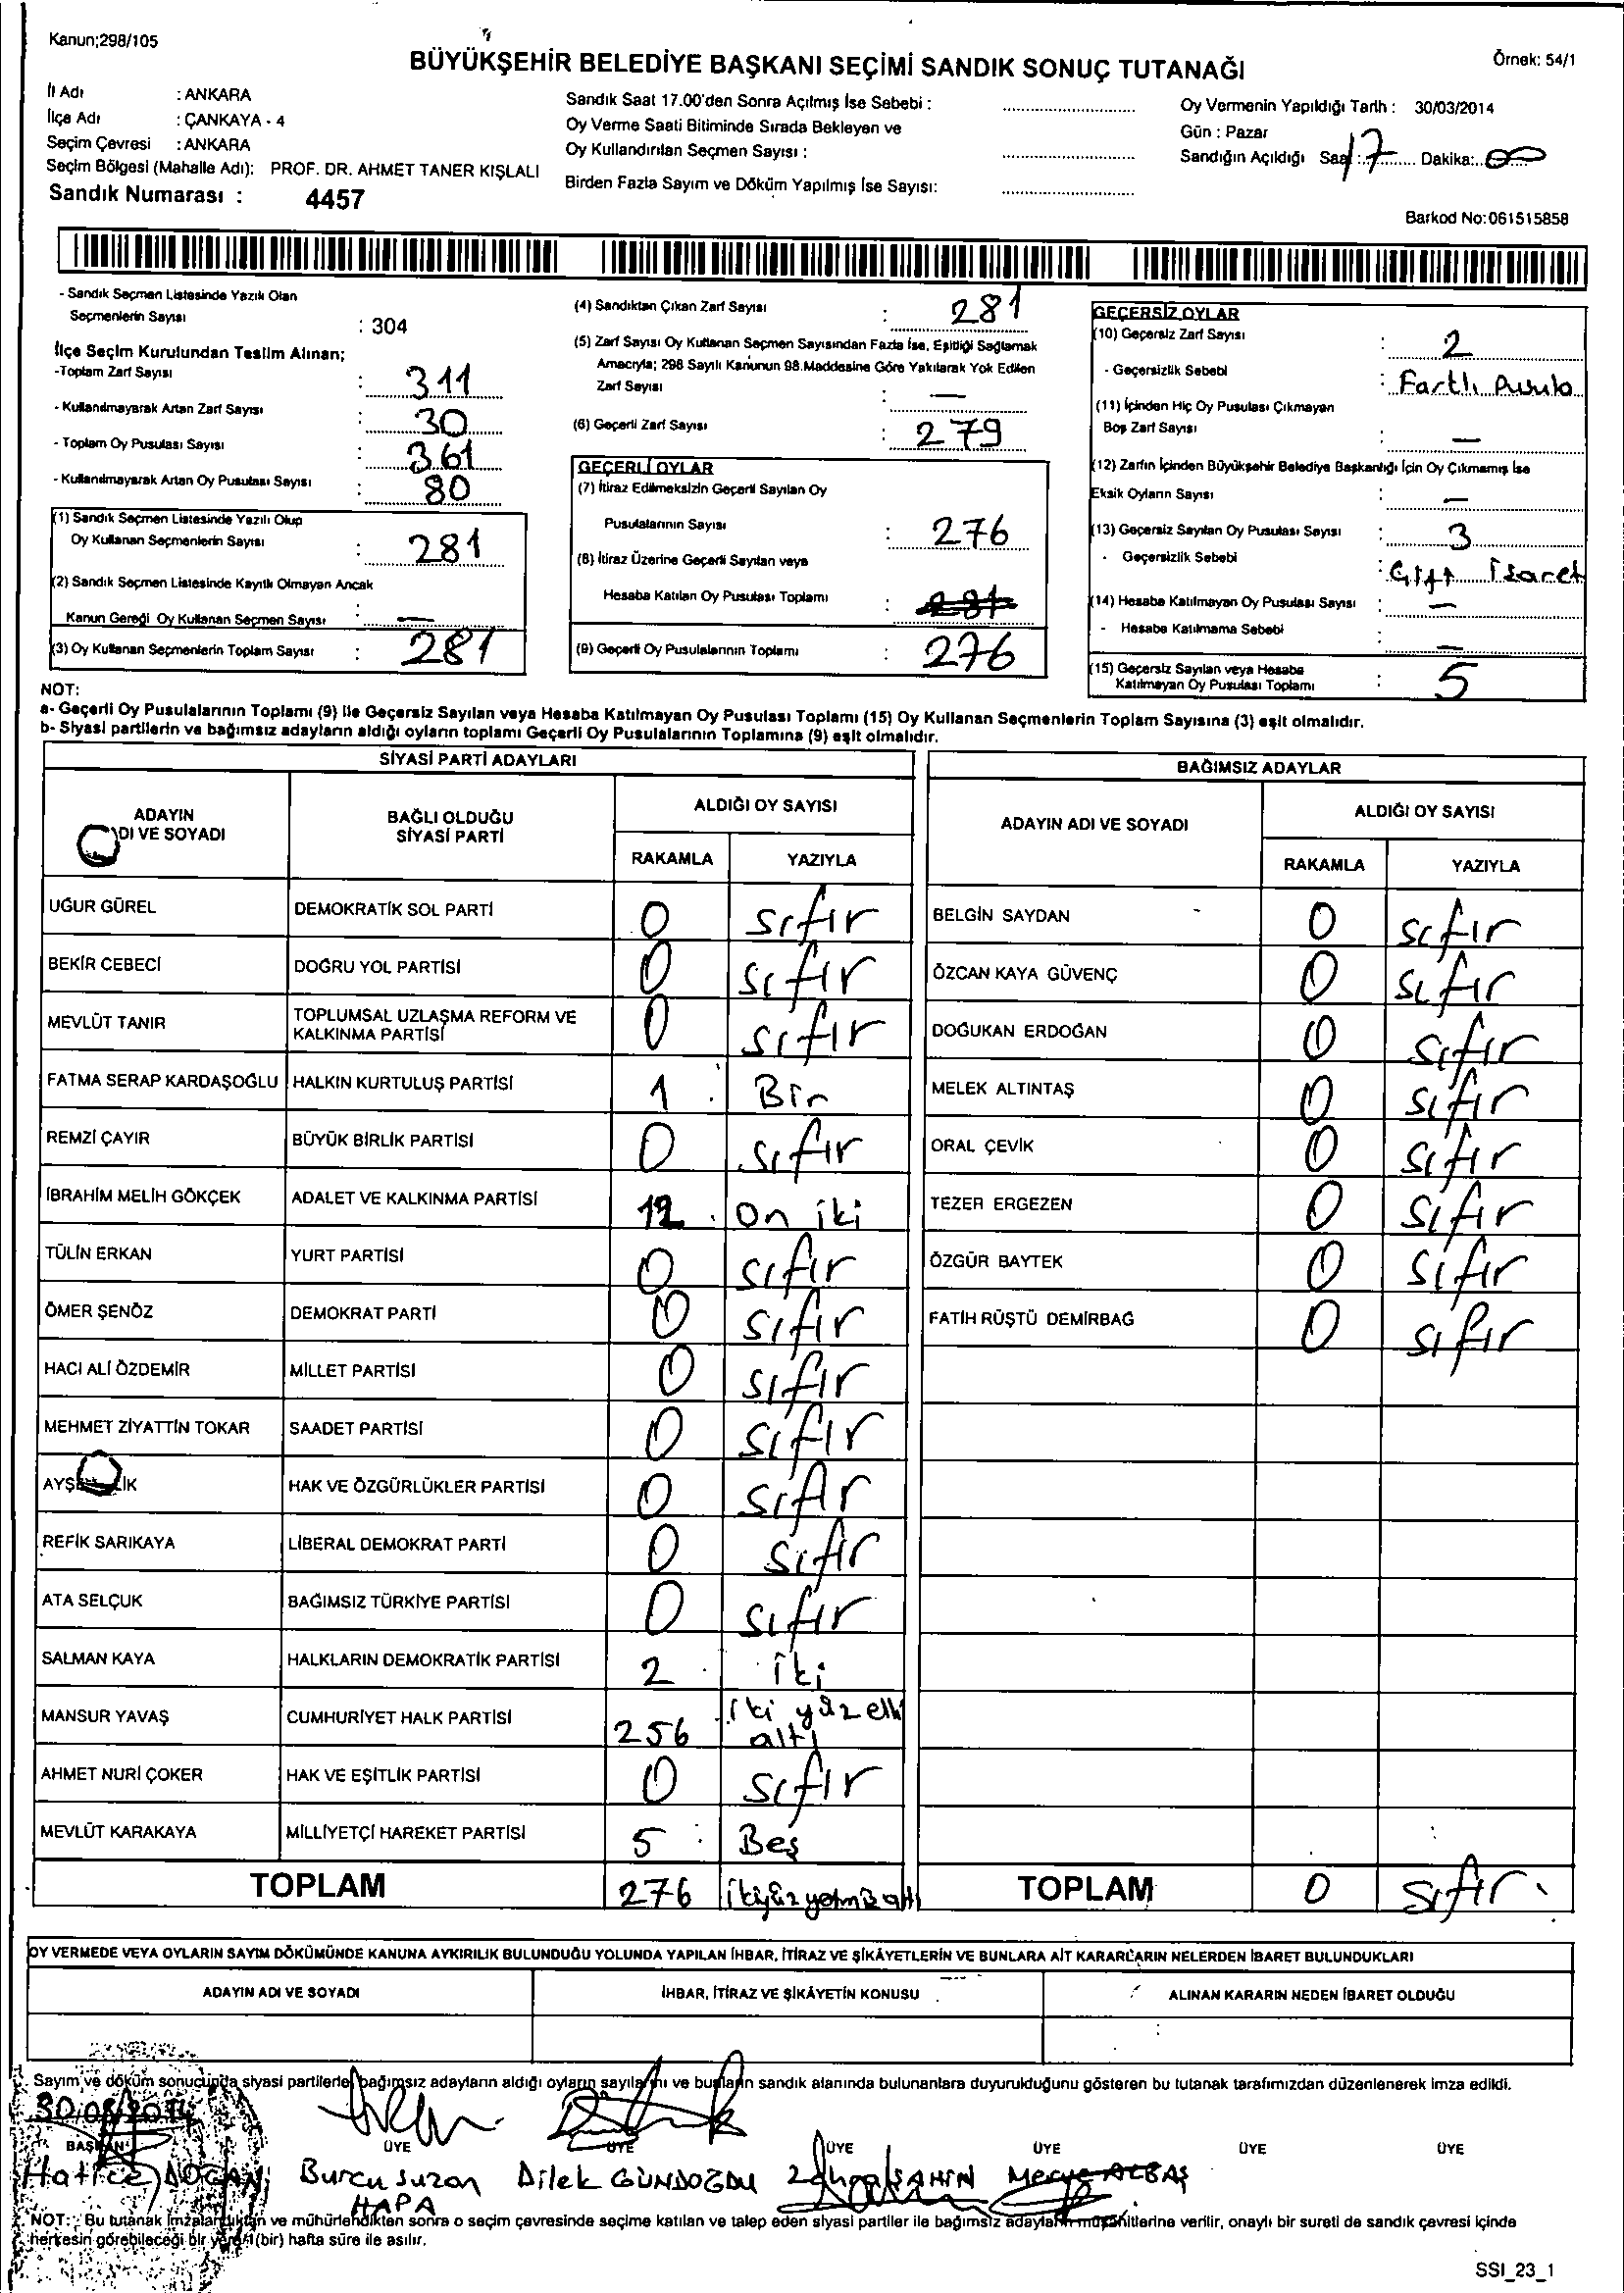 Kanun;298/105
BÜYÜKŞEHİR BELEDİYE BAŞKANI SEÇİMİ SANDIK SONUÇ TUTANAĞI
Örnek: 54/1
İl Adı : ANKARA
İlçe Adı : ÇANKAYA - 4
Seçim Çevresi : ANKARA
Seçim Bölgesi (Mahalle Adı); PROF. DR. AHMET TANER KIŞLALI
Sandık Numarası : 4457
Sandık Saat 17.00'den Sonra Açılmış İse Sebebi :
Oy Verme Saati Bitiminde Sırada Bekleyen ve
Oy Kullandırılan Seçmen Sayısı :
Birden Fazla Sayım ve Döküm Yapılmış İse Sayısı:
Oy Vermenin Yapıldığı Tarih : 30/03/2014
Gün : Pazar
Sandığın Açıldığı Saat : 17 Dakika: 00
Barkod No:061515858
- Sandık Seçmen Listesinde Yazılı Olan
Seçmenlerin Sayısı : 304
İlçe Seçim Kurulundan Teslim Alınan;
-Toplam Zarf Sayısı : 311
- Kullanılmayarak Artan Zarf Sayısı : 30
- Toplam Oy Pusulası Sayısı : 361
- Kullanılmayarak Artan Oy Pusulası Sayısı : 80
(1) Sandık Seçmen Listesinde Yazılı Olup
Oy Kullanan Seçmenlerin Sayısı : 281
(2) Sandık Seçmen Listesinde Kayıtlı Olmayan Ancak
Kanun Gereği Oy Kullanan Seçmen Sayısı : —
(3) Oy Kullanan Seçmenlerin Toplam Sayısı : 281
(4) Sandıktan Çıkan Zarf Sayısı : 281
(5) Zarf Sayısı Oy Kullanan Seçmen Sayısından Fazla İse, Eşitliği Sağlamak
Amacıyla; 298 Sayılı Kanunun 98.Maddesine Göre Yakılarak Yok Edilen
Zarf Sayısı : —
(6) Geçerli Zarf Sayısı : 279
GEÇERLİ OYLAR
(7) İtiraz Edilmeksizin Geçerli Sayılan Oy
Pusulalarının Sayısı : 276
(8) İtiraz Üzerine Geçerli Sayılan veya
Hesaba Katılan Oy Pusulası Toplamı : 281
(9) Geçerli Oy Pusulalarının Toplamı : 276
GEÇERSİZ OYLAR
(10) Geçersiz Zarf Sayısı : 2
- Geçersizlik Sebebi : Fartlı Pusula
(11) İçinden Hiç Oy Pusulası Çıkmayan
Boş Zarf Sayısı : —
(12) Zarfın İçinden Büyükşehir Belediye Başkanlığı İçin Oy Çıkmamış İse
Eksik Oyların Sayısı : —
(13) Geçersiz Sayılan Oy Pusulası Sayısı : 3
- Geçersizlik Sebebi : Çift İşaret
(14) Hesaba Katılmayan Oy Pusulası Sayısı : —
- Hesaba Katılmama Sebebi : —
(15) Geçersiz Sayılan veya Hesaba
Katılmayan Oy Pusulası Toplamı : 5
NOT:
a- Geçerli Oy Pusulalarının Toplamı (9) ile Geçersiz Sayılan veya Hesaba Katılmayan Oy Pusulası Toplamı (15) Oy Kullanan Seçmenlerin Toplam Sayısına (3) eşit olmalıdır.
b- Siyasi partilerin ve bağımsız adayların aldığı oyların toplamı Geçerli Oy Pusulalarının Toplamına (9) eşit olmalıdır.
SİYASİ PARTİ ADAYLARI
ADAYIN
DI VE SOYADI
BAĞLI OLDUĞU
SİYASİ PARTİ
ALDIĞI OY SAYISI
RAKAMLA YAZIYLA
UĞUR GÜREL DEMOKRATİK SOL PARTİ 0 sıfır
BEKİR CEBECİ DOĞRU YOL PARTİSİ 0 sıfır
MEVLÜT TANIR TOPLUMSAL UZLAŞMA REFORM VE
KALKINMA PARTİSİ 0 sıfır
FATMA SERAP KARDAŞOĞLU HALKIN KURTULUŞ PARTİSİ 1 Bir
REMZİ ÇAYIR BÜYÜK BİRLİK PARTİSİ 0 sıfır
İBRAHİM MELİH GÖKÇEK ADALET VE KALKINMA PARTİSİ 12 On iki
TÜLİN ERKAN YURT PARTİSİ 0 sıfır
ÖMER ŞENÖZ DEMOKRAT PARTİ 0 sıfır
HACI ALİ ÖZDEMİR MİLLET PARTİSİ 0 sıfır
MEHMET ZİYATTİN TOKAR SAADET PARTİSİ 0 sıfır
AYŞE LİK HAK VE ÖZGÜRLÜKLER PARTİSİ 0 sıfır
REFİK SARIKAYA LİBERAL DEMOKRAT PARTİ 0 sıfır
ATA SELÇUK BAĞIMSIZ TÜRKİYE PARTİSİ 0 sıfır
SALMAN KAYA HALKLARIN DEMOKRATİK PARTİSİ 2 iki
MANSUR YAVAŞ CUMHURİYET HALK PARTİSİ 256 iki yüz elli
altı
AHMET NURİ ÇOKER HAK VE EŞİTLİK PARTİSİ 0 sıfır
MEVLÜT KARAKAYA MİLLİYETÇİ HAREKET PARTİSİ 5 Beş
TOPLAM 276 ikiyüz yetmiş altı
BAĞIMSIZ ADAYLAR
ADAYIN ADI VE SOYADI
ALDIĞI OY SAYISI
RAKAMLA YAZIYLA
BELGİN SAYDAN 0 sıfır
ÖZCAN KAYA GÜVENÇ 0 sıfır
DOĞUKAN ERDOĞAN 0 sıfır
MELEK ALTINTAŞ 0 sıfır
ORAL ÇEVİK 0 sıfır
TEZER ERGEZEN 0 sıfır
ÖZGÜR BAYTEK 0 sıfır
FATİH RÜŞTÜ DEMİRBAĞ 0 sıfır
TOPLAM 0 sıfır
OY VERMEDE VEYA OYLARIN SAYIM DÖKÜMÜNDE KANUNA AYKIRILIK BULUNDUĞU YOLUNDA YAPILAN İHBAR, İTİRAZ VE ŞİKÂYETLERİN VE BUNLARA AİT KARARLARIN NELERDEN İBARET BULUNDUKLARI
ADAYIN ADI VE SOYADI
İHBAR, İTİRAZ VE ŞİKÂYETİN KONUSU
ALINAN KARARIN NEDEN İBARET OLDUĞU
Sayım ve döküm sonucunda siyasi partilerle bağımsız adayların aldığı oyların sayılarını ve bunların sandık alanında bulunanlara duyurulduğunu gösteren bu tutanak tarafımızdan düzenlenerek imza edildi.
30/03/2014
BAŞKAN ÜYE ÜYE ÜYE ÜYE ÜYE ÜYE
Hatice DOĞAN Burcu Suzan Dilek GÜNDOĞDU ŞAHİN
HAPA
NOT: Bu tutanak imzalandıktan ve mühürlendikten sonra o seçim çevresinde seçime katılan ve talep eden siyasi partiler ile bağımsız adayların müşahitlerine verilir, onaylı bir sureti de sandık çevresi içinde
herkesin görebileceği bir yere 1 (bir) hafta süre ile asılır.
SSI_23_1